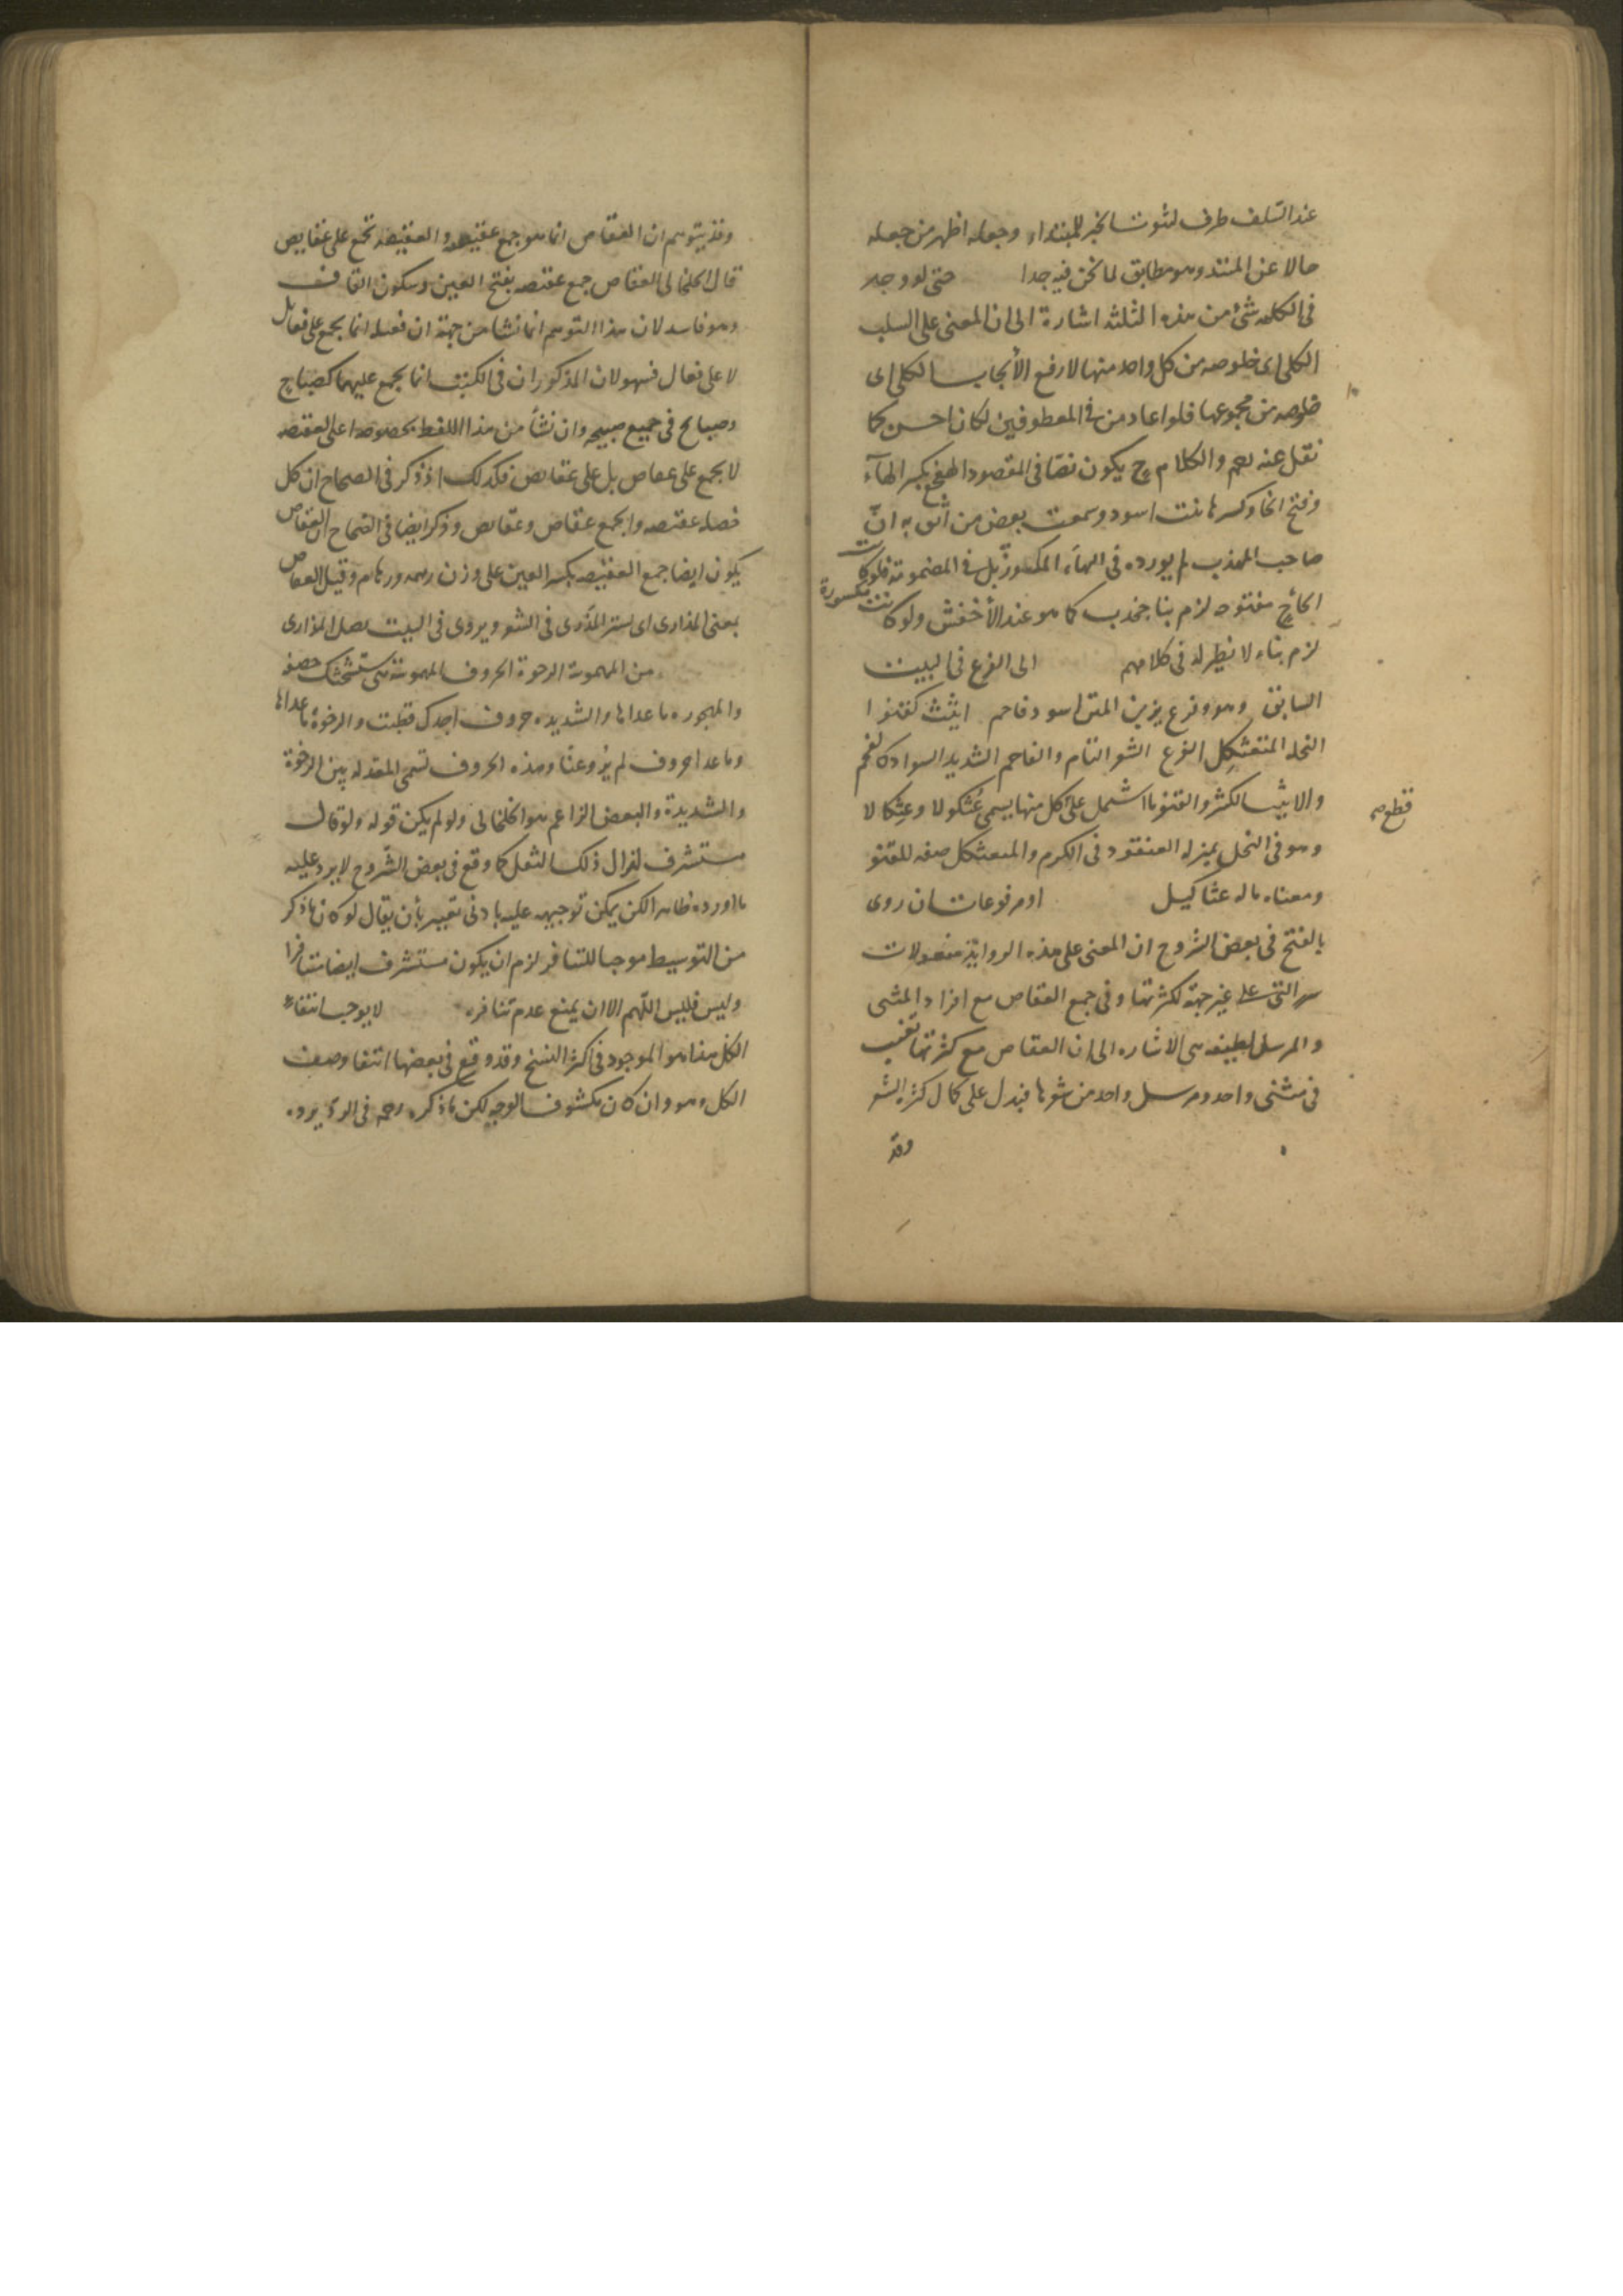 عند السلف ظرف لثوت الخبر للمبتداء وجعله اظهر من جعله
حالا عن المبتدا وهو مطابق لما نحن فيه جدا حتى لو وجد
فى الكلمه شئ من هذه الثلثه اشارة الى ان المعنى على السلب
الكلى اى خلوصه من كل واحد منها لا رفع الأيجاب الكلى اى
خلوصه من مجموعها فلو اعاد من فى المعطوفين لكان احسن كما
نقل عنه نعم والكلام ح يكون نصّا فى المقصود الهعخع بكسر الهآء
وفتح الخا وكسرها نبت اسود وسمعت بعض من اثق به انّ
صاحب المهذب لم يورده فى الهاء المكسورة بل فى المضمومة فلو كانت
الخاء ح مفتوحه لزم بنا جخدب كما هو عند الأخفش ولو كانت مكسورة
لزم بناء لا نظير له فى كلامهم الى الفرع فى البيت
السابق وهو وفرع يزين المتن اسود فاحم اثيث كقنو ا
النخله المتعثكِل الفرع الشعر التام والفاحم الشديد السواد كالفحم
والاثيث الكثير والقنو ما اشتمل على كل منها يسمى عُثكولا وعِثكالا
قطع صح
وهو فى النخل بمنزله العنقود فى الكرم والمتعثكل صفه للقنو
ومعناه ماله عثاكيل او مرفوعات ان روى
بالفتح فى بعض الشروح ان المعنى على هذه الروايۃ مفعولات
على غير جهة لكثرتها وفى جمع العقاص مع افراد المثنى
والمرسل لطيفه هى الاشاره الى ان العقاص مع كثرتها تغيب
فى مثنى واحد ومرسل واحد من شعرها فيدل على كمال كثرة الشعر
وقد
وقد يتوهم ان العقاص انما هو جمع عقيصه والعقيصه تجمع على عقايص
قال الخلخالى العقاص جمع عقصه بفتح العين وسكون القاف
وهو فاسد لان هذا التوهم انما نشا من جهة ان فعيله انما يجمع على فعايل
لا على فعال فسهو لان المذكوران فى الكتب انما يجمع عليهما كصباح
وصبايح فى جميع صبيحه وان نشأ من هذا اللفظ بخصوصه اعلى العقصه
لا يجمع على عقاص بل على عقايص فكذلك اذ ذكر فى الصحاح ان كل
خصله عقصه والجمع عقاص وعقايص وذكر ايضا فى الصحاح ان العقاص
يكون ايضا جمع العقصه بكسر العين على وزن رهمه ورهام وقيل العقاص
بمعنى المذارى اى ستر المذرى فى الشعر ويروى فى البيت يضل المذارى
من المهموسة الرخوة الحروف المهموسة هى ستشحثك خصفه
والمجهوره ما عداها والشديده حروف اجدك قطبت والرخوة ما عداها
وما عدا حروف لم يَرُوعنّا وهذه الحروف تسمى المعتدله بين الرخوة
والشديدة والبعض الزاعم هو الخلخالى ولو لم يكن قوله ولو قال
مستشرف لزال ذلك الثقل كما وقع فى بعض الشروح لا يرد عليه
ما اورده ظاهرا لكن يمكن توجيهه عليه بادنى تغيير بأن يقال لو كان ما ذكر
من التوسيط موجبا للتنافر لزم ان يكون مستشرف ايضا متنافرا
وليس فليس اللّهم الا ان يمنع عدم تنافره لا يوجب انتفاء
الكل هذا هو الموجود فى اكثر النسخ وقد وقع فى بعضها انتفا وصف
الكل وهو وان كان مكشوف الوجه لكن ما ذكره رحمه فى الرد يرده